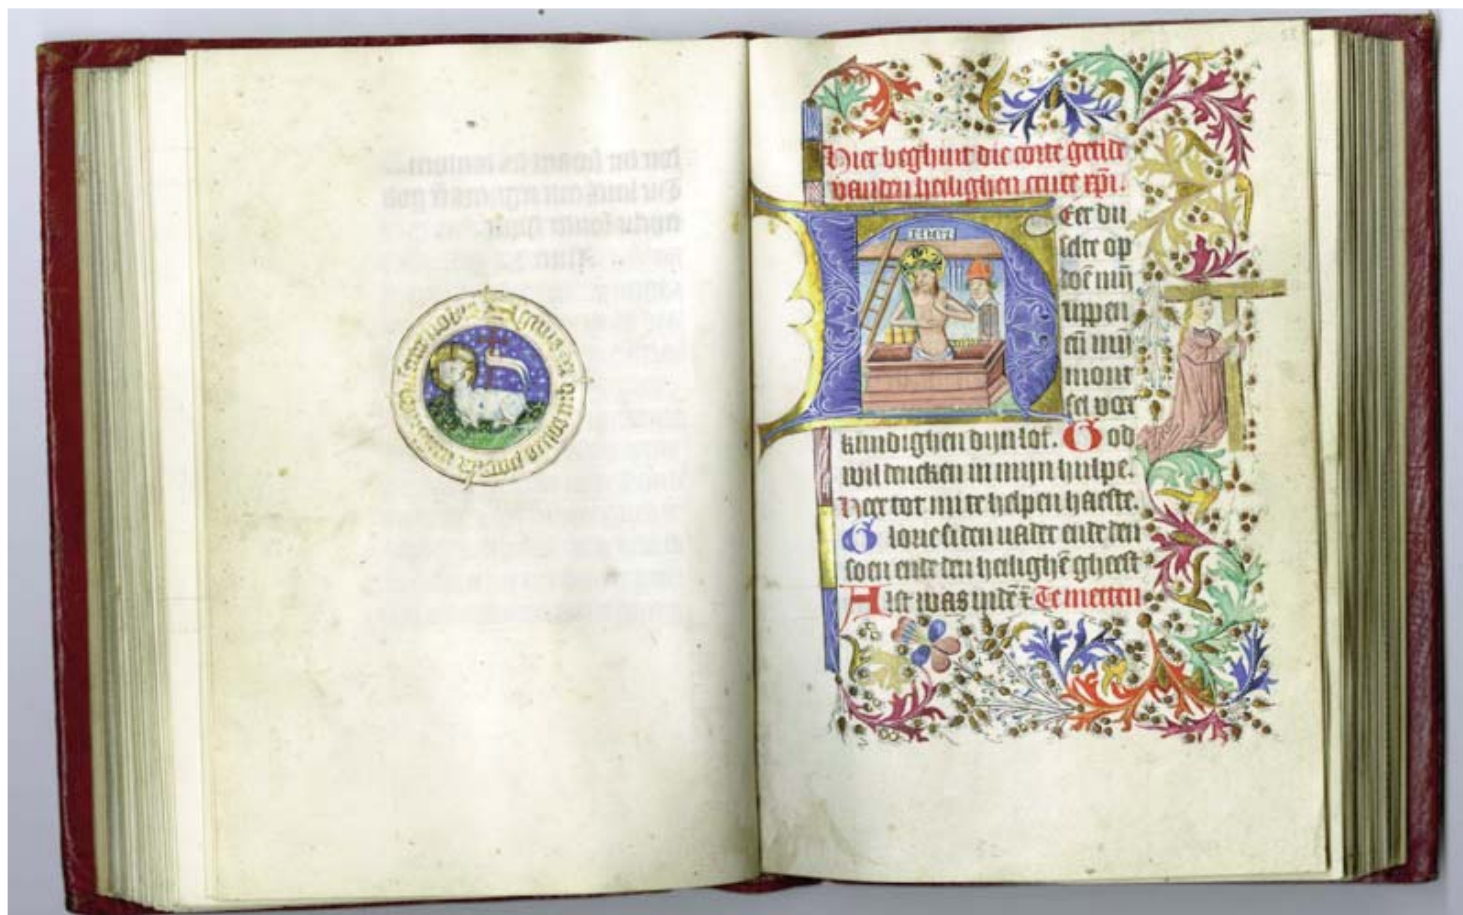 Agnus dei qui tollis peccata miserere nobis
Hier beghint die corte getide
vanden heilighen cruce xpi.
HEer du
selte op
doē mijn
lippen
eñ mijn
mont
sel voer
kundighen dijn lof. God
wil dencken in mijn hulpe.
Heer tot mi te helpen haeste.
Glorie si den vader ende den
soen ende den heilighē gheest
Alst was indē Te metten